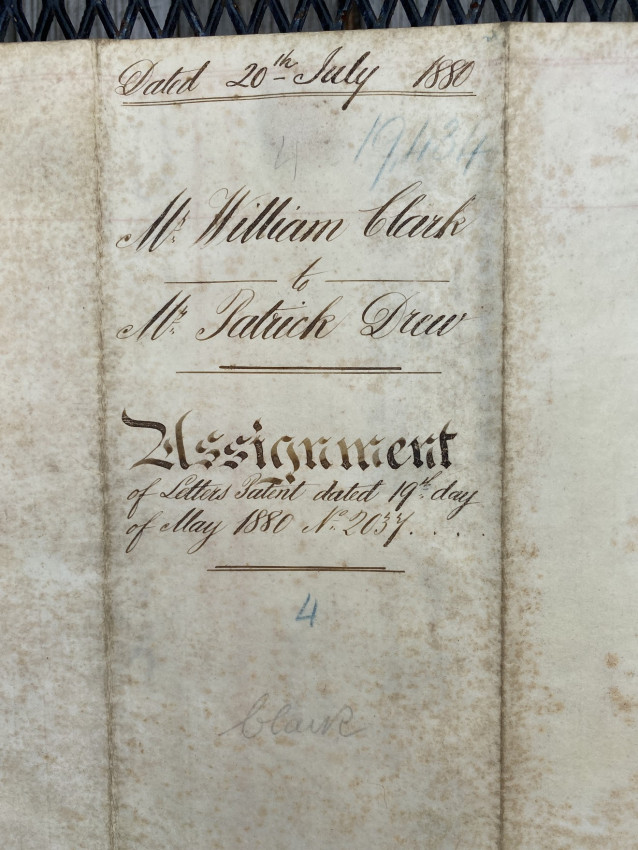 Dated 20th July 1880
4
19484
Mr. William Clark
to
Mr. Patrick Drew
Assignment
of Letters Patent dated 19th day
of May 1880 No. 2037. . . .
4
Clark